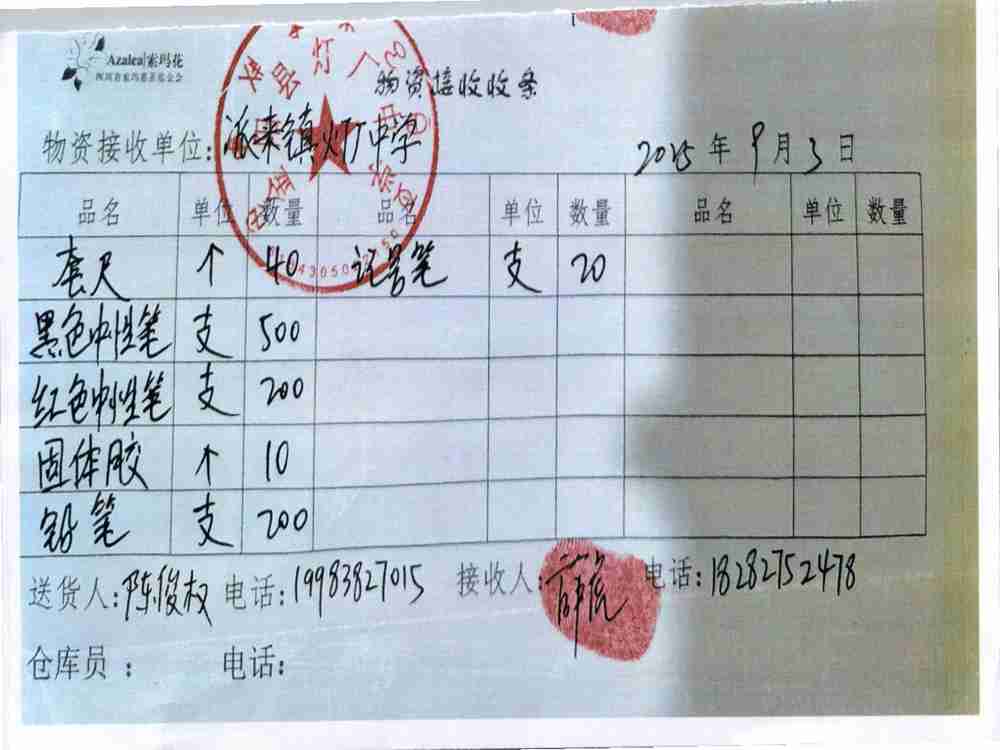 Azalea|索玛花
四川省索玛慈善基金会
物资接收收条
物资接收单位:派来镇灯厂中学 2025年9月3日
品名 单位 数量 品名 单位 数量 品名 单位 数量
套尺 个 40 记号笔 支 20
黑色中性笔 支 500
红色中性笔 支 200
固体胶 个 10
铅笔 支 200
送货人:陈俊权 电话:19983827015 接收人:薛虎 电话:18282752478
仓库员: 电话: